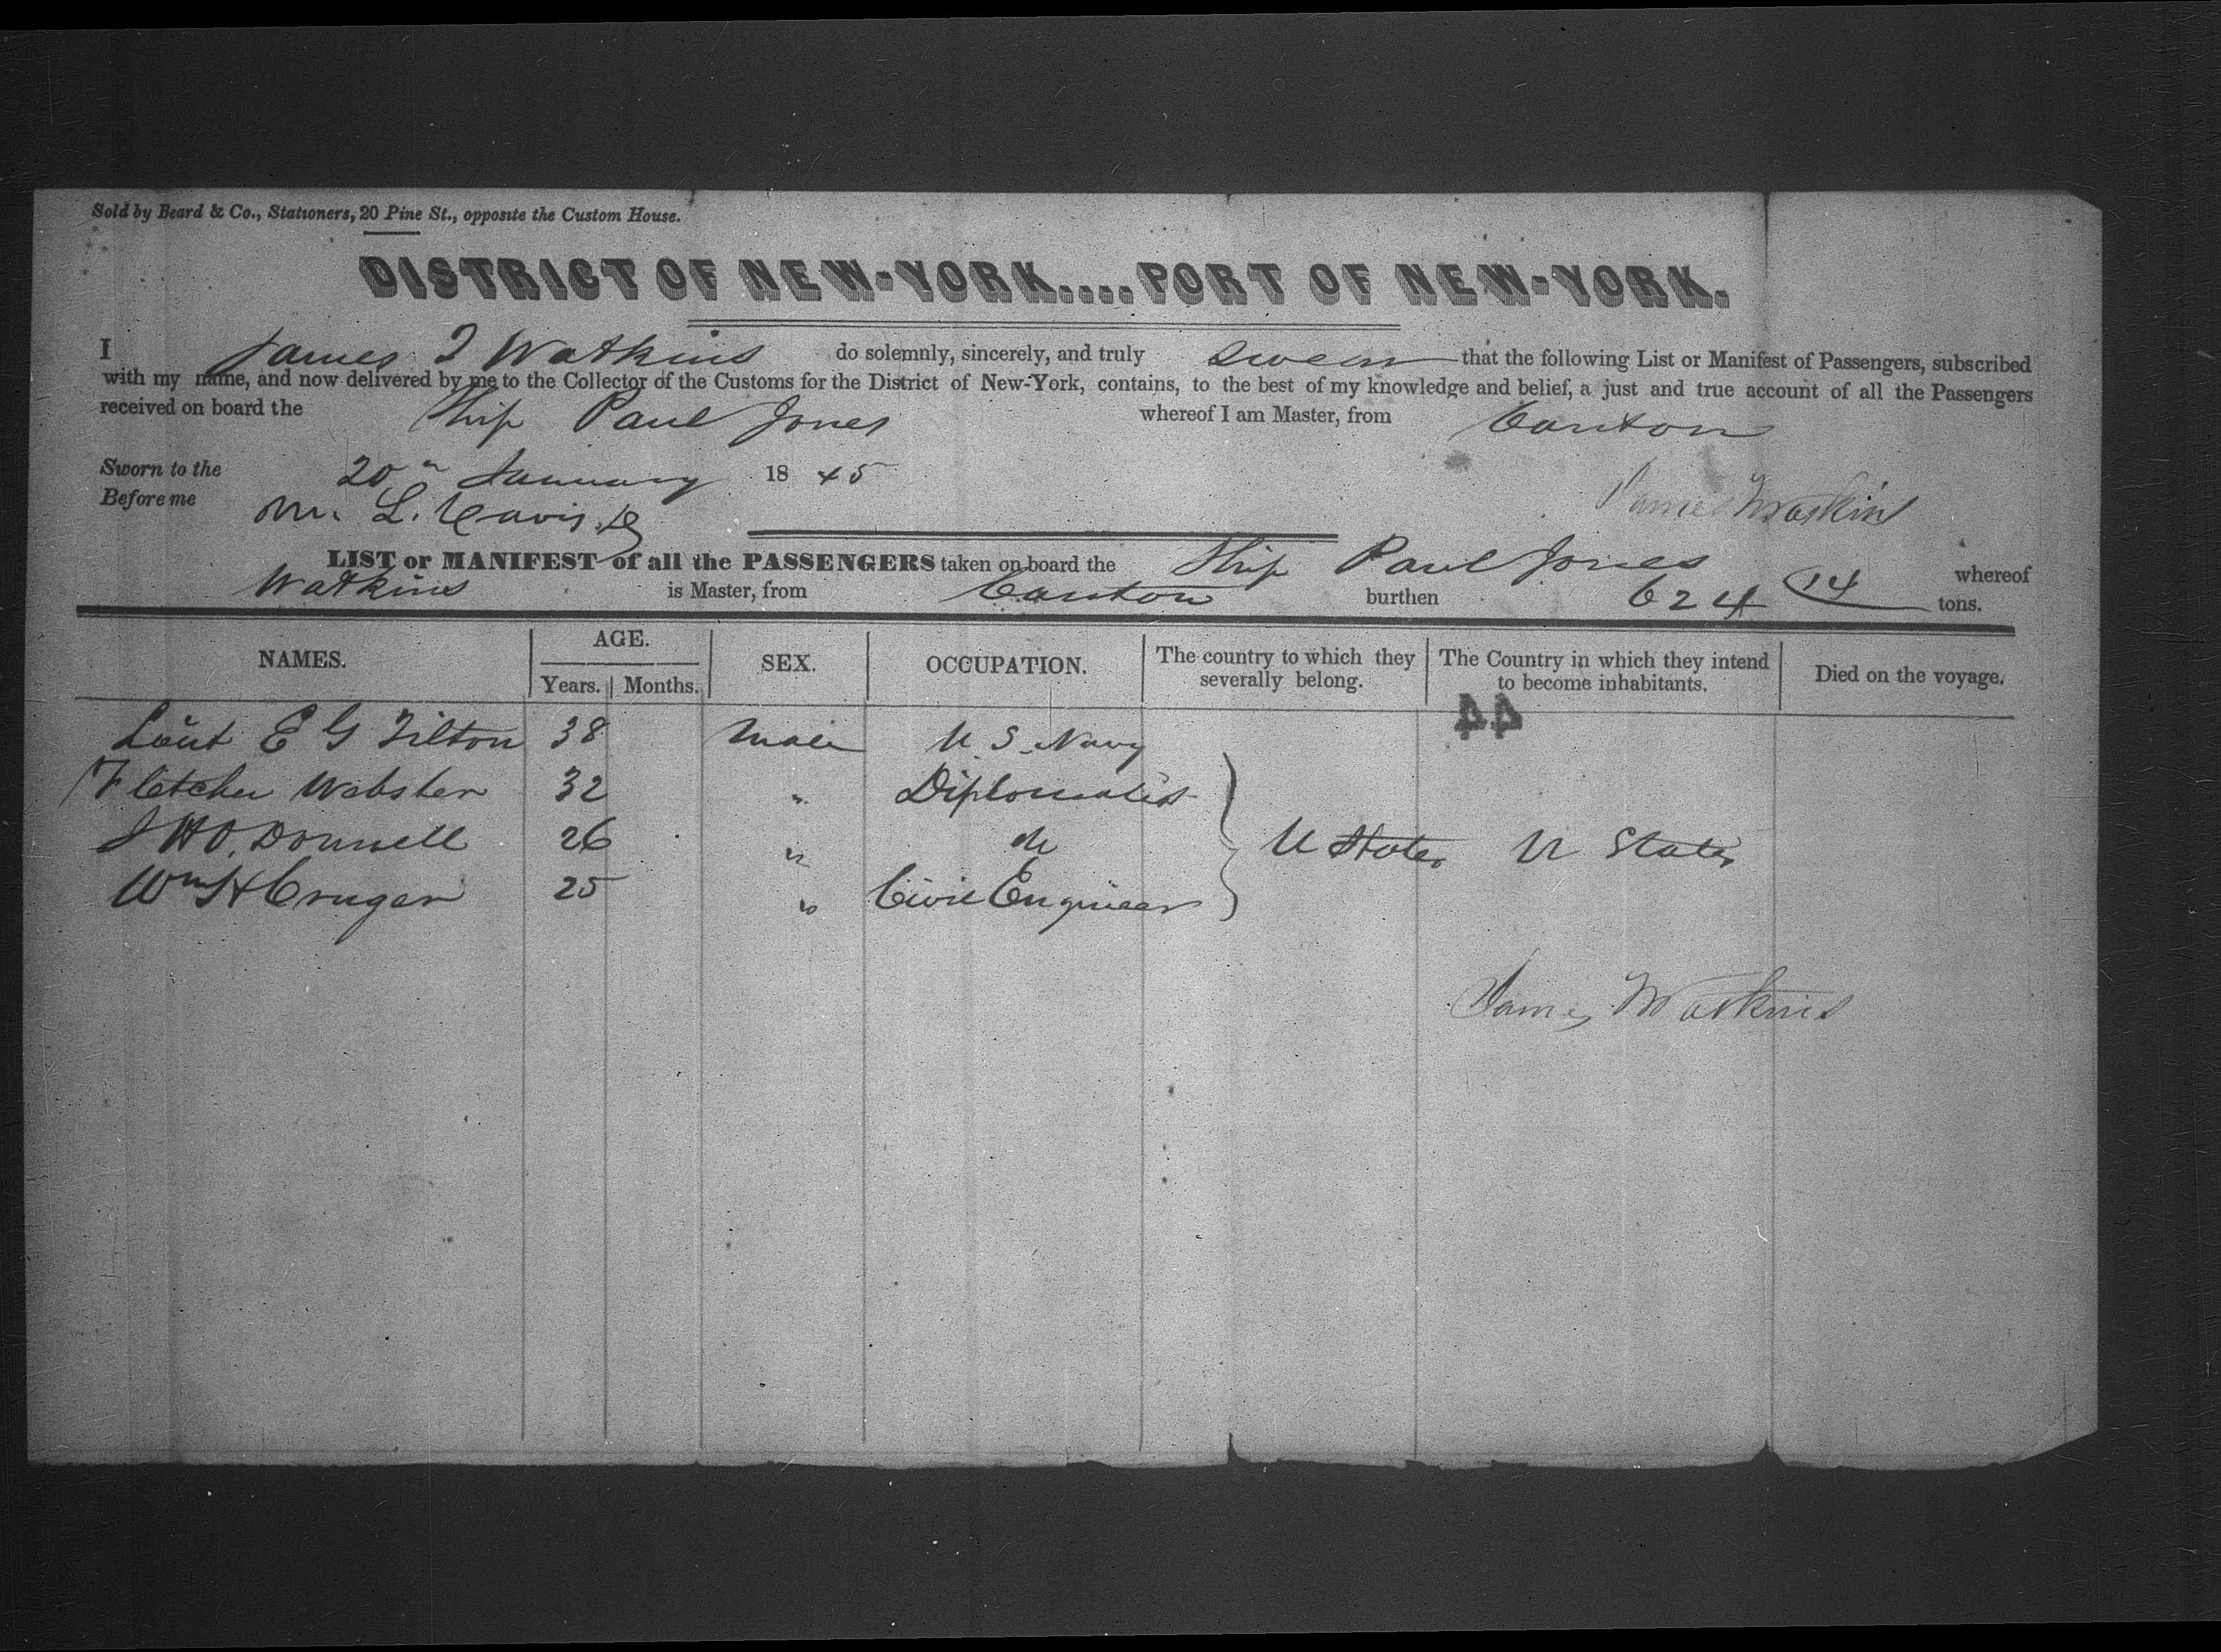 Sold by Beard & Co., Stationers, 20 Pine St., opposite the Custom House.
DISTRICT OF NEW-YORK....PORT OF NEW-YORK.
I James T Watkins do solemnly, sincerely, and truly swear that the following List or Manifest of Passengers, subscribed
with my name, and now delivered by me to the Collector of the Customs for the District of New-York, contains, to the best of my knowledge and belief, a just and true account of all the Passengers
received on board the Ship Paul Jones whereof I am Master, from Canton
Sworn to the 20th January 1845 James Watkins
Before me M. L. Davis
LIST or MANIFEST of all the PASSENGERS taken on board the Ship Paul Jones whereof
Watkins is Master, from Canton burthen 624 14 tons.
NAMES. AGE. SEX. OCCUPATION. The country to which they severally belong. The Country in which they intend to become inhabitants. Died on the voyage.
Years. Months.
44
Lieut E G Tilton 38 Male U S Navy
Fletcher Webster 32 " Diplomatist
J H O.Donnell 26 " do U States U States
Wm H Cruger 25 " Civil Engineer
James Watkins